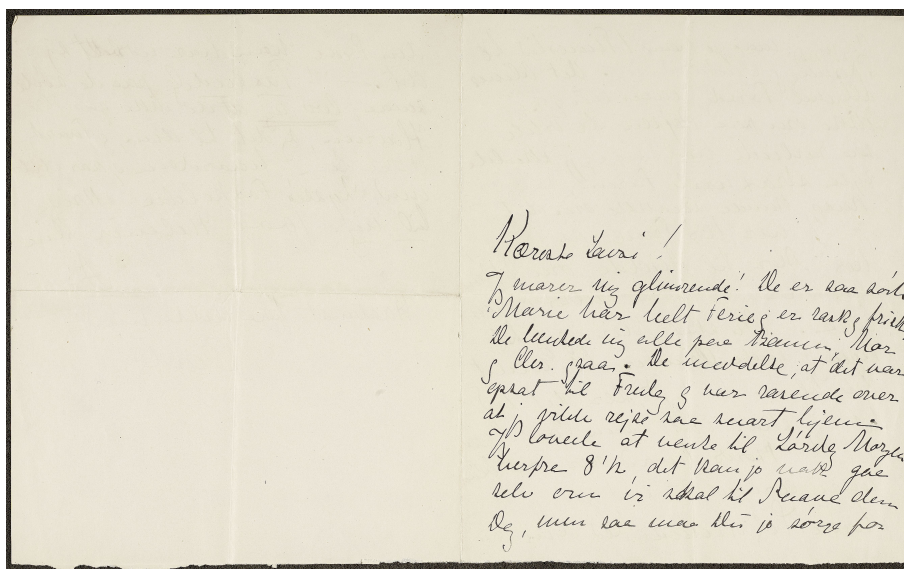 Kæreste Lavri!
Jeg morer mig glimrende! De er saa sørd
Marie har helt Ferie og er rask og frisk
De hentede mig alle paa Banen, Mor
og Chr. ogsaa. De meddelte, at det var
opsat til Fredag og var rasende over
at j vilde rejse saa snart hjem.
Jeg lovede at vente til Lørdag Morgen
herfra 8 1/2, det kan jo nok gaa
selv om vi skal til Ruane den
Dag, men saa maa Du jo sørge for